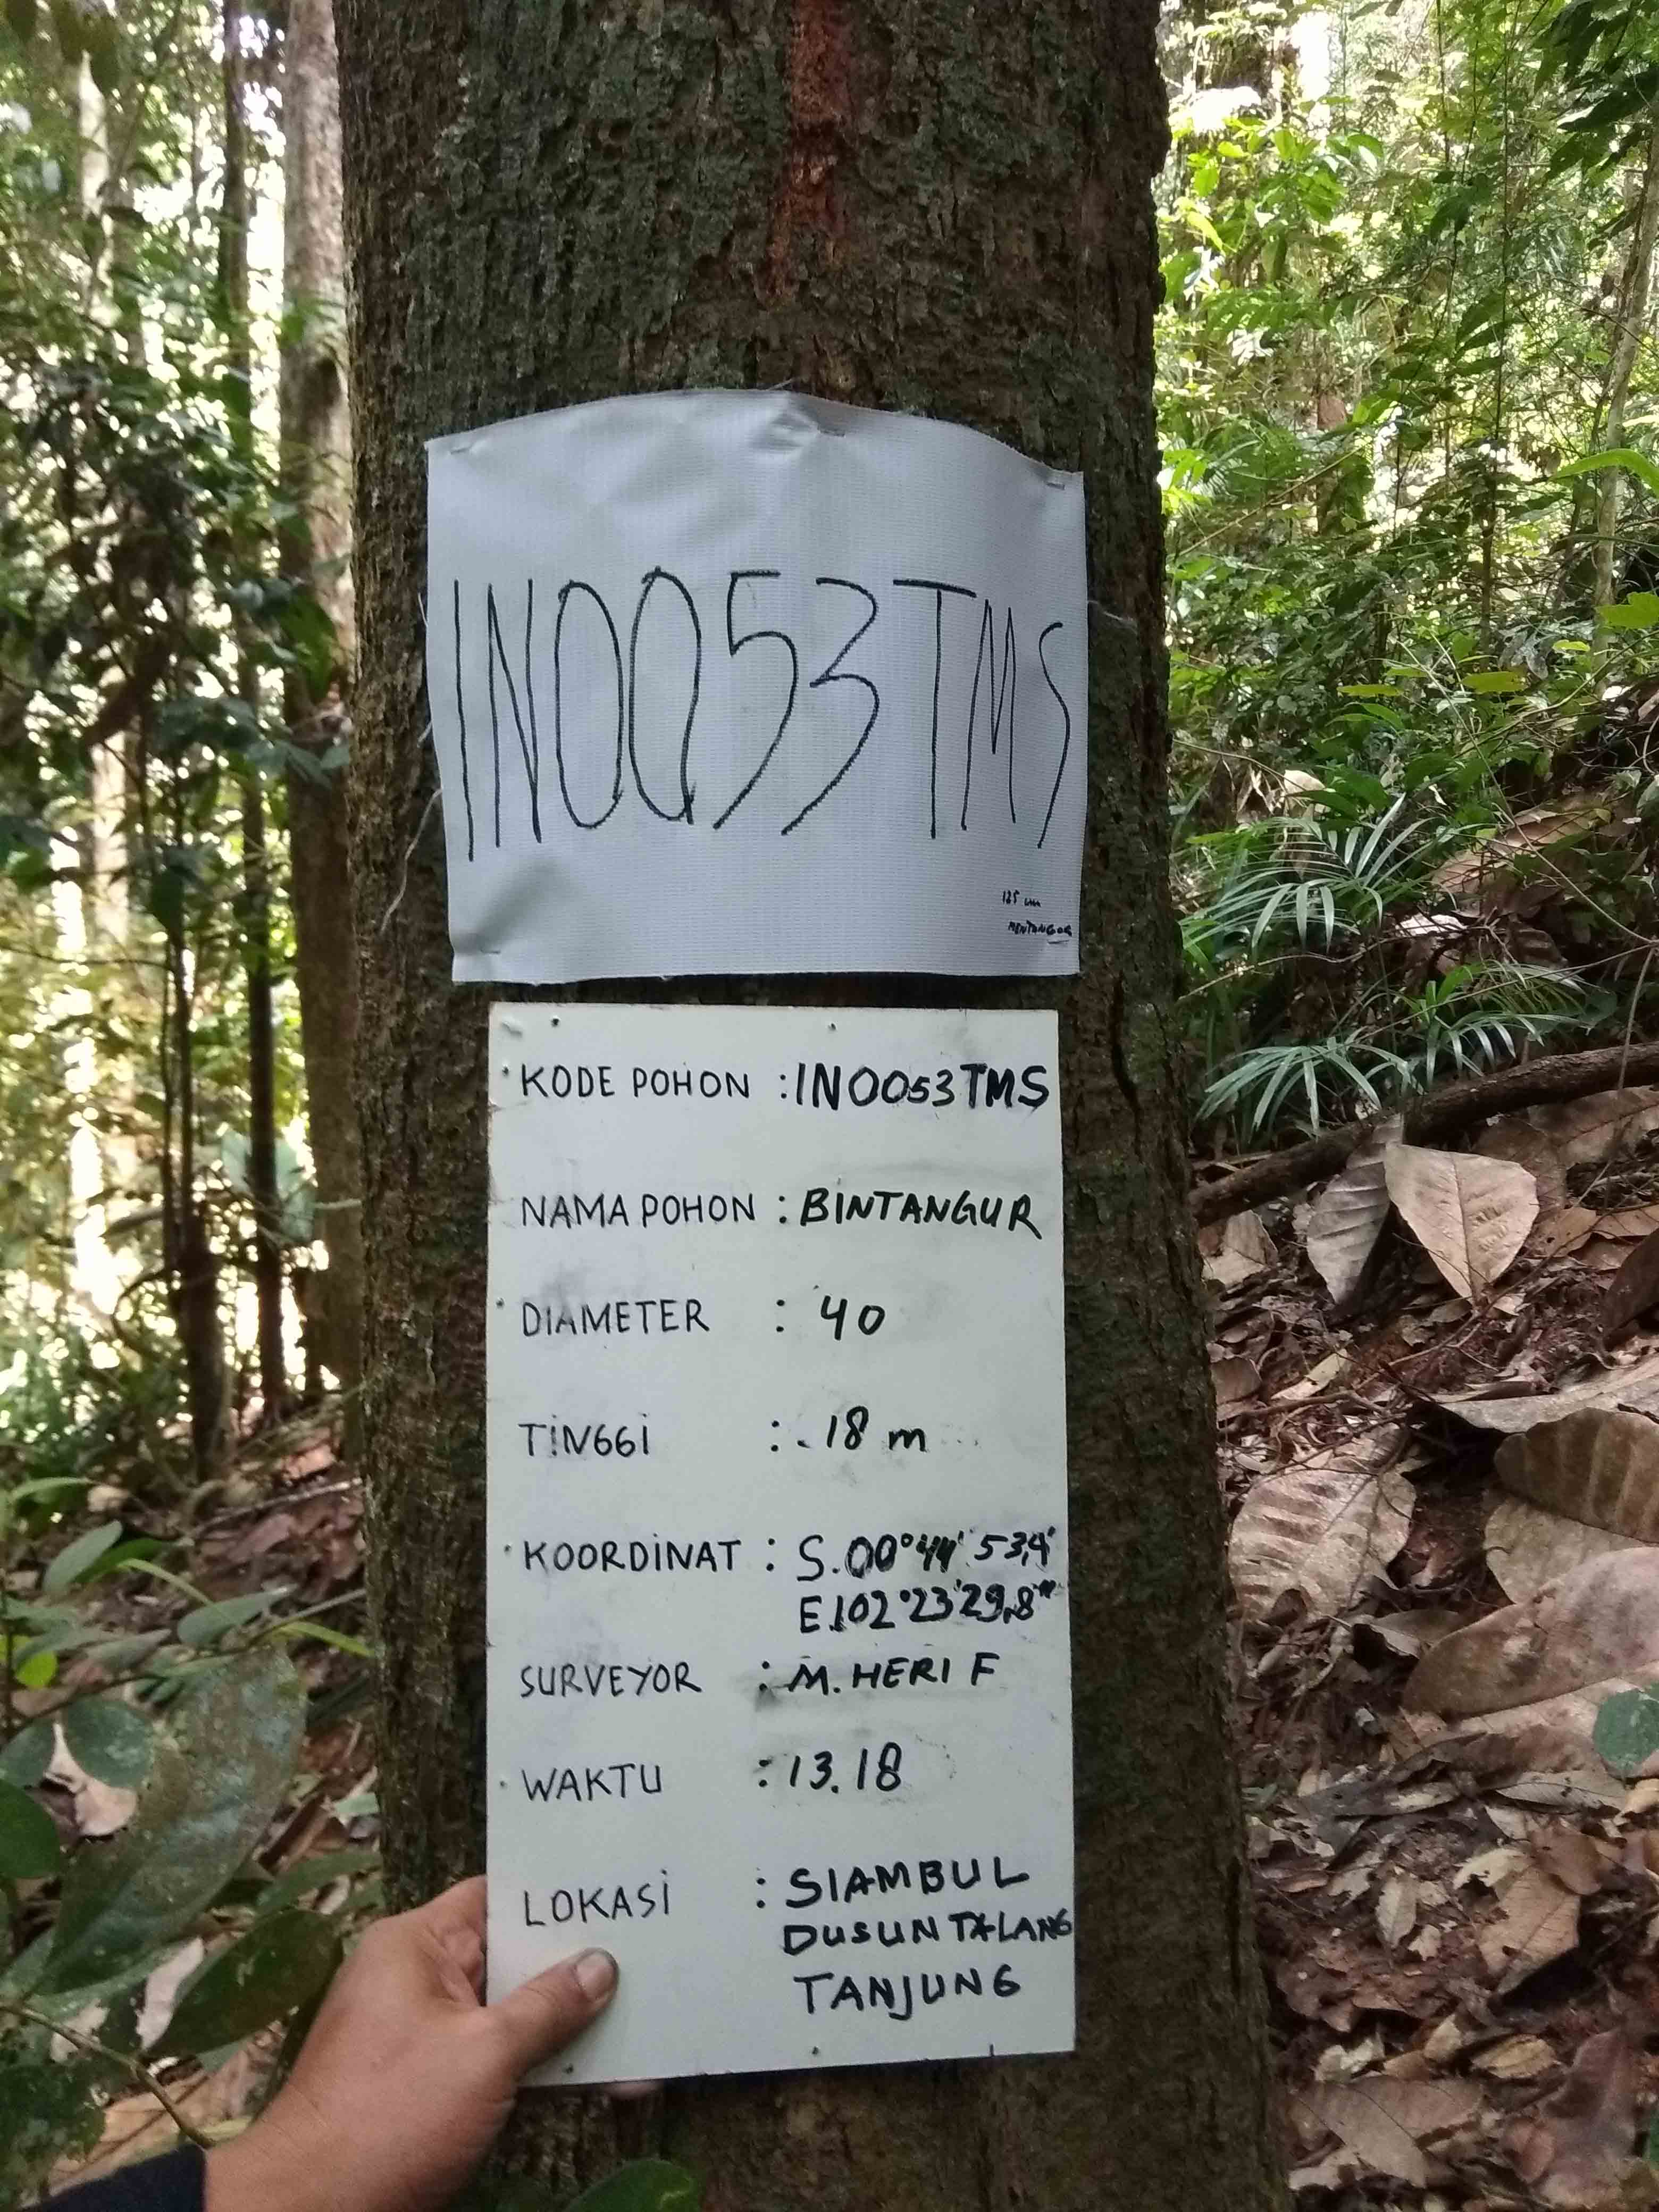 IN0053TMS
125 cm
MENTANGOR
KODE POHON : IN0053TMS
NAMA POHON : BINTANGUR
DIAMETER : 40
TINGGI : 18 m
KOORDINAT : S.00°44' 53,4"
E.102°23'29,8"
SURVEYOR : M. HERI F
WAKTU : 13.18
LOKASI : SIAMBUL
DUSUN TALANG
TANJUNG